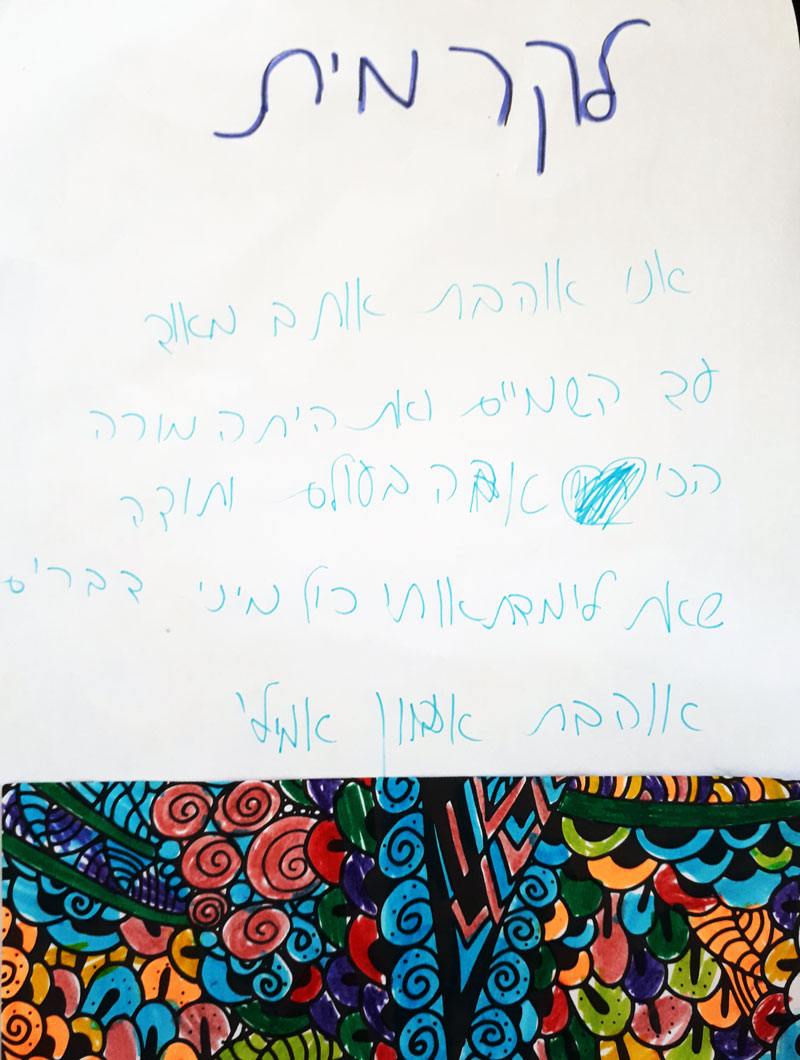 לקרמית
אני אוהבת אותב מאוד
עד השמיים ואת היתה מורה
הכי אהבה בעולם ותודה
שאת לימדת אותי כול מיני דברים
אוהבת אמילי